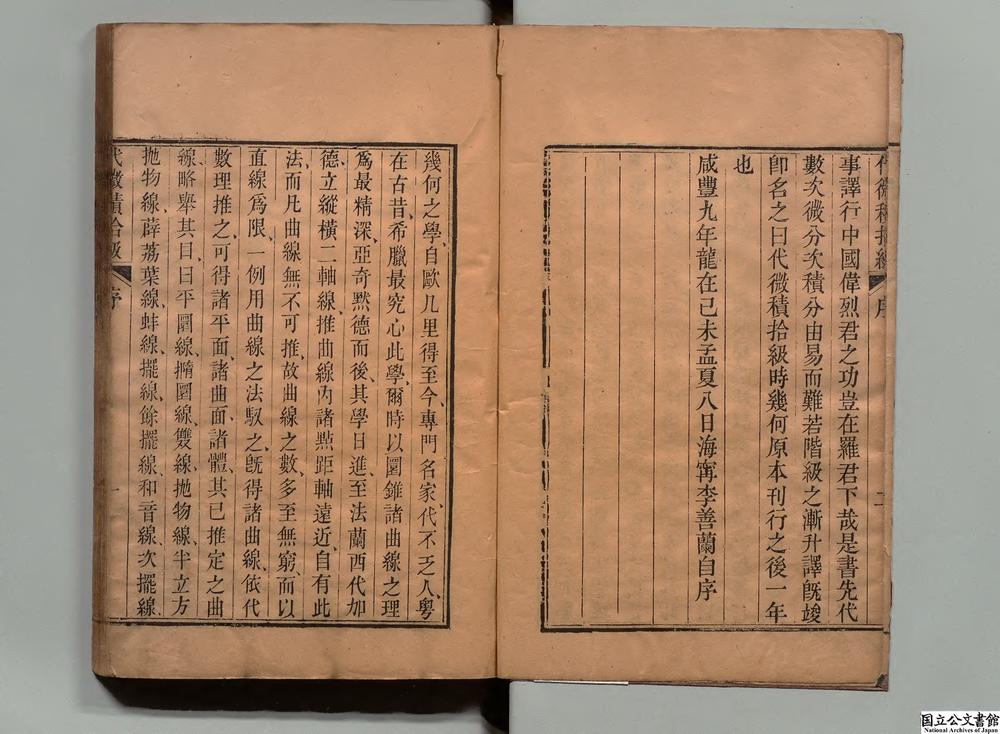 代微積拾級 序 二
事譯行中國偉烈君之功豈在羅君下哉是書先代
數次微分次積分由易而難若階級之漸升譯既竣
卽名之曰代微積拾級時幾何原本刊行之後一年
也
咸豐九年龍在己未孟夏八日海寗李善蘭自序
幾何之學、自歐几里得至今、專門名家、代不乏人、粤
在古昔、希臘最究心此學、爾時以圜錐諸曲線之理
爲最精深、亞奇默德而後、其學日進、至法蘭西代加
德、立縱橫二軸線、推曲線內諸㸃距軸遠近、自有此
法、而凡曲線無不可推、故曲線之數、多至無窮、而以
直線爲限、一例用曲線之法馭之、旣得諸曲線、依代
數理推之、可得諸平面、諸曲面、諸體、其已推定之曲
線、略舉其目、曰平圜線、橢圜線、雙線、拋物線、半立方
拋物線、薜荔葉線、蚌線、擺線、餘擺線、和音線、次擺線、
代微積拾級 序 一
国立公文書館
National Archives of Japan